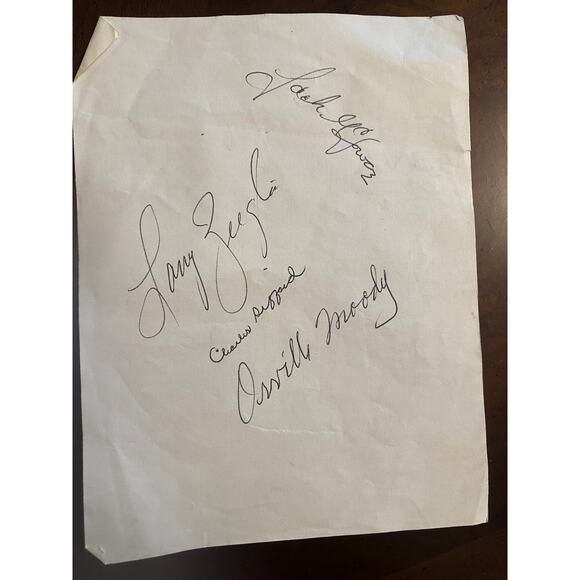 Jack McGowan
Larry Ziegler
Charles Sifford
Orville Moody